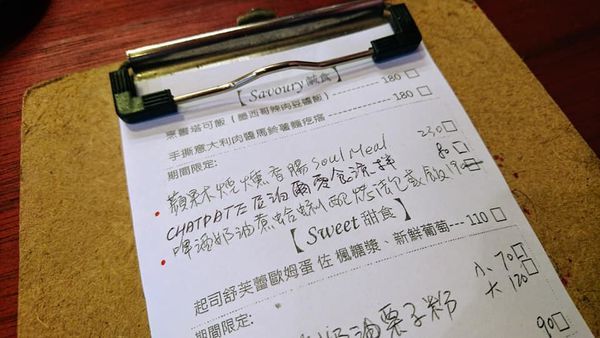 【Savoury 鹹食】
東響塔可飯（墨西哥辣肉豆醬飯） 180 □
手撕意大利肉醬馬鈴薯麵疙瘩 180 □
期間限定:
蘋果木煙燻香腸 Soul Meal 230 □
CHATPATE 尼泊爾零食涼拌 80 □
啤酒奶油煮蛤蜊 配烤法包或飯 190 □
【Sweet 甜食】
起司舒芙蕾歐姆蛋 佐 楓糖漿、新鮮葡萄 --- 110 □
期間限定:
小 70 □
大 120 □
奶油栗子粉
90 □